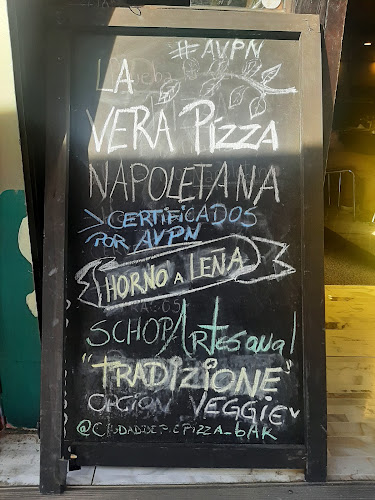 #AVPN
LA
VERA Pizza
NAPOLETANA
> CERTIFICADOS
POR AVPN
HORNO A LENA
SCHOP Artesanal
"TRADIZIONE"
OPCION VEGGIE